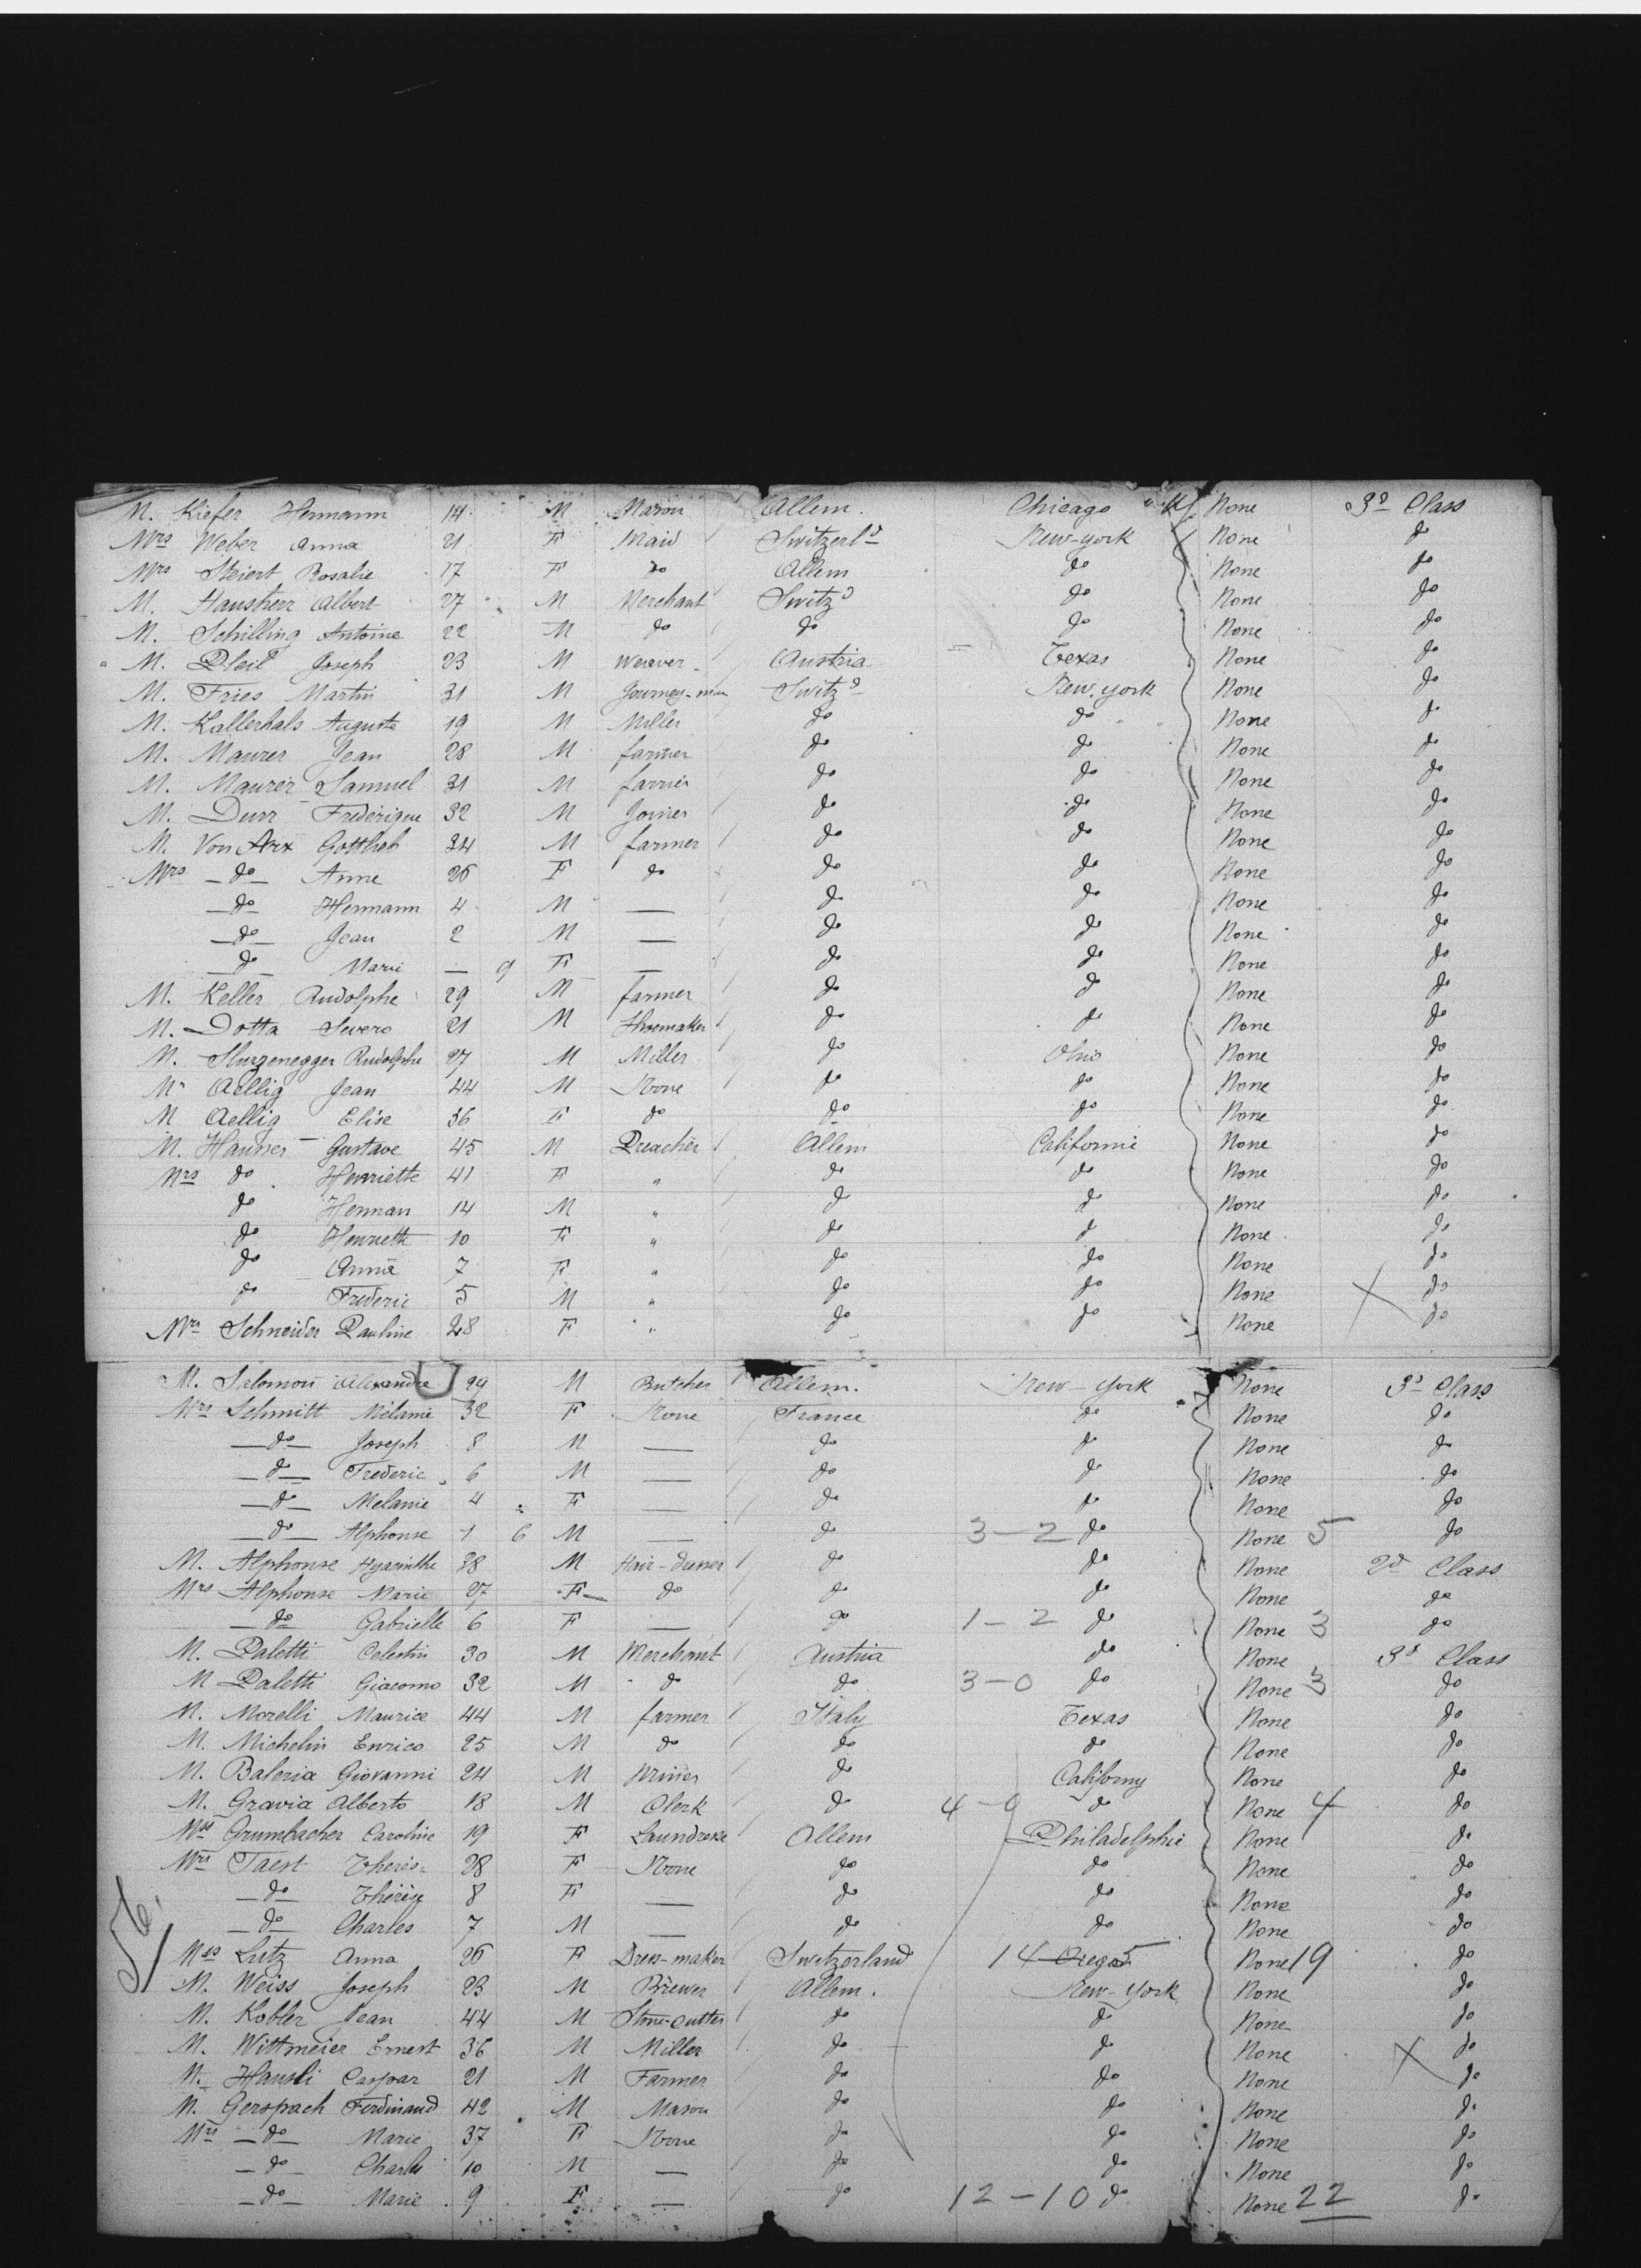 M. Kiefer Hermann 14 M Mason Allem. Chicago None 3d Class
Mrs Weber Anna 21 F Maid Switzerld New-york None do
Mrs Steiert Rosalie 17 F do Allem do None do
M. Hausherr Albert 27 M Merchant Switzd do None do
M. Schilling Antoine 22 M do do do None do
M. Pleil Joseph 23 M Weaver Austria Texas None do
M. Fries Martin 31 M Journey-man Switzd New-york None do
M. Kallerhals Auguste 19 M Miller do do None do
M. Maurer Jean 28 M farmer do do None do
M. Maurer Samuel 31 M farrier do do None do
M. Durr Frederique 32 M Joiner do do None do
M. Von Arx Gottlieb 34 M farmer do do None do
Mrs -do- Anne 26 F do do do None do
-do- Hermann 4 M — do do None do
-do- Jean 2 M — do do None do
-do- Marie — 9 F — do do None do
M. Keller Rudolphe 29 M farmer do do None do
M. Dotta Severo 21 M Shoemaker do do None do
M. Sturzenegger Rudolphe 27 M Miller do Ohio None do
M. Aellig Jean 44 M None do do None do
M Aellig Elise 36 F do do do None do
M. Hausser Gustave 45 M Preacher Allem Californie None do
Mrs do Henriette 41 F " do do None do
do Herman 14 M " do do None do
do Henriette 10 F " do do None do
do Anna 7 F " do do None do
do Frederic 5 M " do do None do
Mrs Schneider Pauline 28 F " do do None do
M. Salomon Alexandre 29 M Butcher Allem. New-York None 3d Class
Mrs Schmitt Mélanie 32 F None France do None do
-do- Joseph 8 M — do do None do
-do- Frederic 6 M — do do None do
-do- Melanie 4 F — do do None do
-do- Alphonse 1 6 M — do 3-2 do None 5 do
M. Alphonse Hyacinthe 38 M Hair-dresser do do None 2d Class
Mrs Alphonse Marie 27 F do do do None do
-do- Gabrielle 6 F — do 1-2 do None 3 do
M. Paletti Celestin 30 M Merchant Austria do None 3d Class
M Paletti Giacomo 32 M do do 3-0 do None 3 do
M. Morelli Maurice 44 M farmer Italy Texas None do
M. Michelin Enrico 25 M do do do None do
M. Baleria Giovanni 24 M Miner do Californy None do
M. Gravia Alberto 18 M Clerk do 4-0 do None 4 do
Mrs Grumbacher Caroline 19 F Laundress Allem Philadelphie None do
Mrs Taest Therese 28 F None do do None do
-do- Thérèse 8 F — do do None do
-do- Charles 7 M — do do None do
Mrs Lutz Anna 26 F Dress-maker Switzerland 14 Oregon 5 None 19 do
M. Weiss Joseph 23 M Brewer Allem. New-York None do
M. Kobler Jean 44 M Stone-cutter do do None do
M. Wittmeier Ernest 36 M Miller do do None do
M. Hausli Caspar 21 M Farmer do do None do
M. Gerspach Ferdinand 42 M Mason do do None do
Mrs -do- Marie 37 F None do do None do
-do- Charles 10 M — do do None do
-do- Marie 9 F — do 12-10 do None 22 do